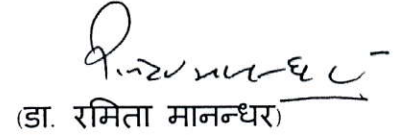 (डा. रमिता मानन्धर)